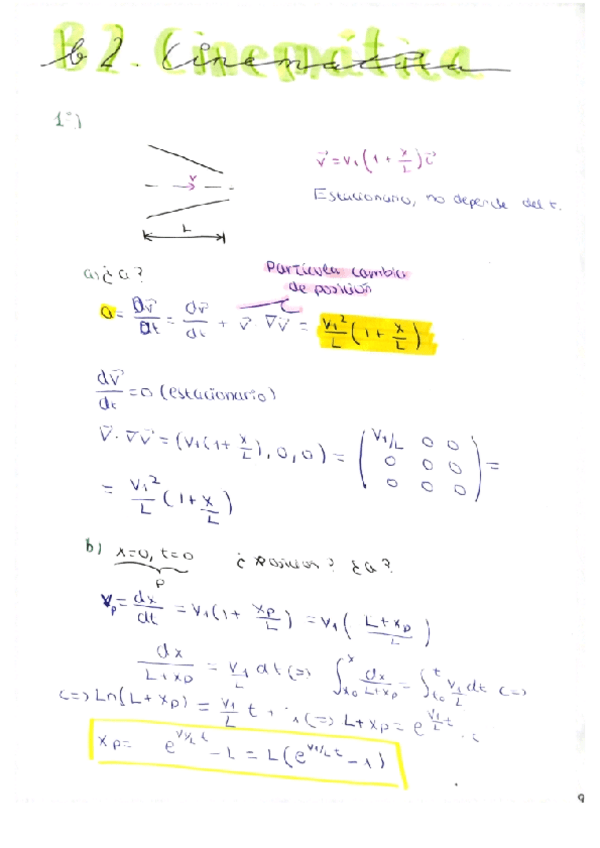 B2. Cinemática
1º)
v⃗ = v₁(1 + x/L) i⃗
Estacionario, no depende del t.
v
L
a) ¿a?
Partícula cambia
de posición
a = Dv⃗/Dt = dv⃗/dt + v⃗ ∇v⃗ = v₁²/L (1 + x/L)
dv⃗/dt = 0 (estacionario)
v⃗ · ∇v⃗ = (v₁(1 + x/L), 0, 0) = (v₁/L 0 0
0 0 0
0 0 0) =
= v₁²/L (1 + x/L)
b) x=0, t=0 ¿Posición? ¿a?
P
v_p = dx/dt = v₁(1 + x_p/L) = v₁((L + x_p)/L)
dx/(L + x_p) = v₁/L dt (=) ∫_{x₀}^{x} dx/(L + x_p) = ∫_{t₀}^{t} v₁/L dt (=)
(=) Ln(L + x_p) = v₁/L t + (=) L + x_p = e^{v₁/L t} · c
x_p = e^{v₁/L t} - L = L(e^{v₁/L t} - 1)